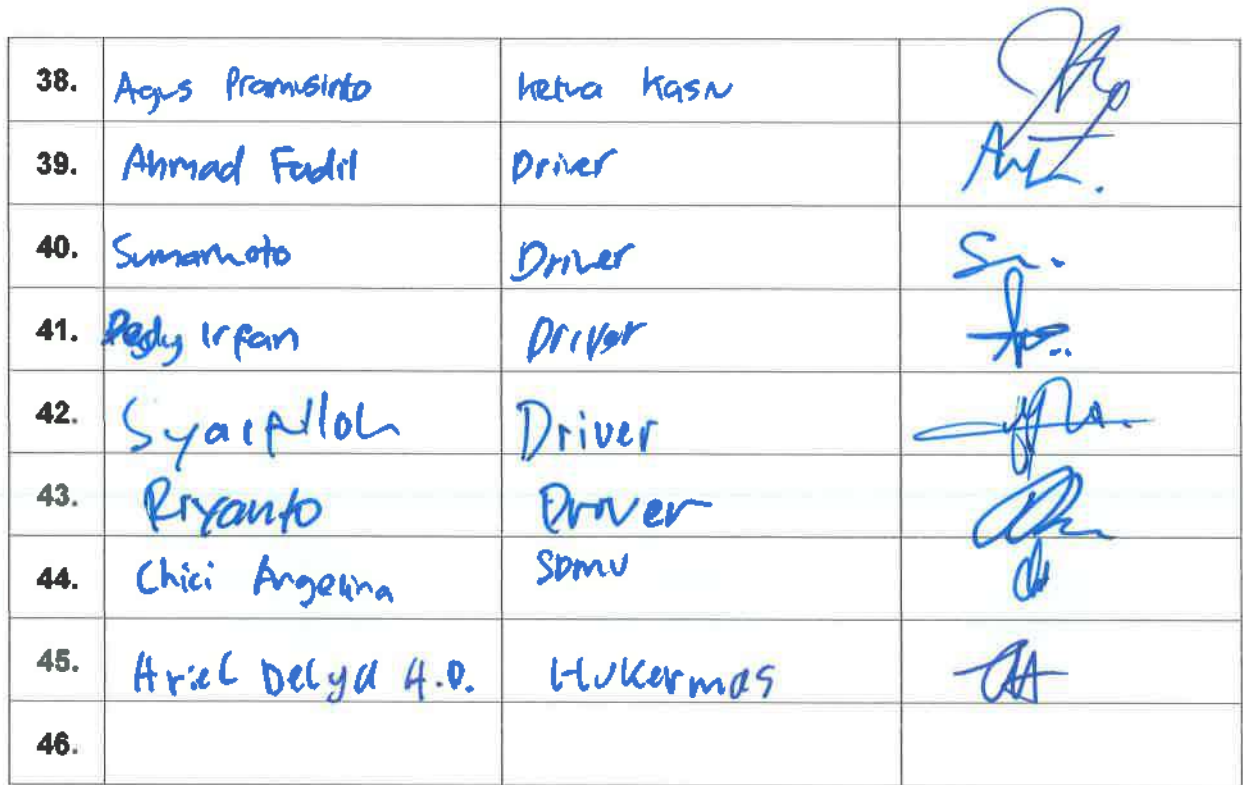 38. Agus Pramusinto Ketua KASN
39. Ahmad Fadil Driver
40. Sumarnoto Driver
41. Dedy Irfan Driver
42. Syaifulloh Driver
43. Riyanto Driver
44. Chici Angelina SDMU
45. Ariel Delya A.D. Hukermas
46.